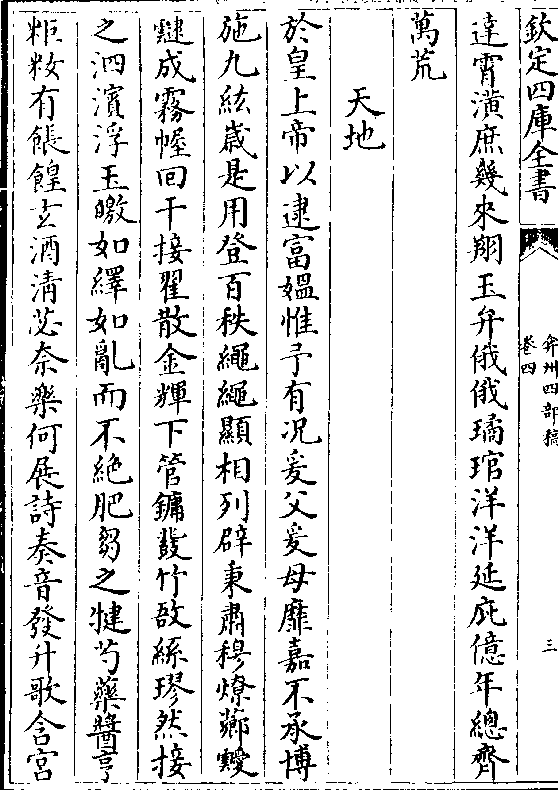 欽定四庫全書
弇州四部稿
卷四
三
達霄潢庶幾來翔玉弁俄俄璚琯洋洋延庇億年總齊
萬荒
天地
於皇上帝以逮富媼惟予有况爰父爰母靡嘉不承博
施九紘歲是用登百秩繩繩顯相列辟秉肅穆燎薌靉
靆成霧幄回干接翟散金輝下管鏞鼗竹敔絲璆然接
之泗濱浮玉曒如繹如亂而不絶肥芻之犍芍藥醬亨
粔籹有餦餭玄酒清苾奈樂何展詩奏音發升歌含宮